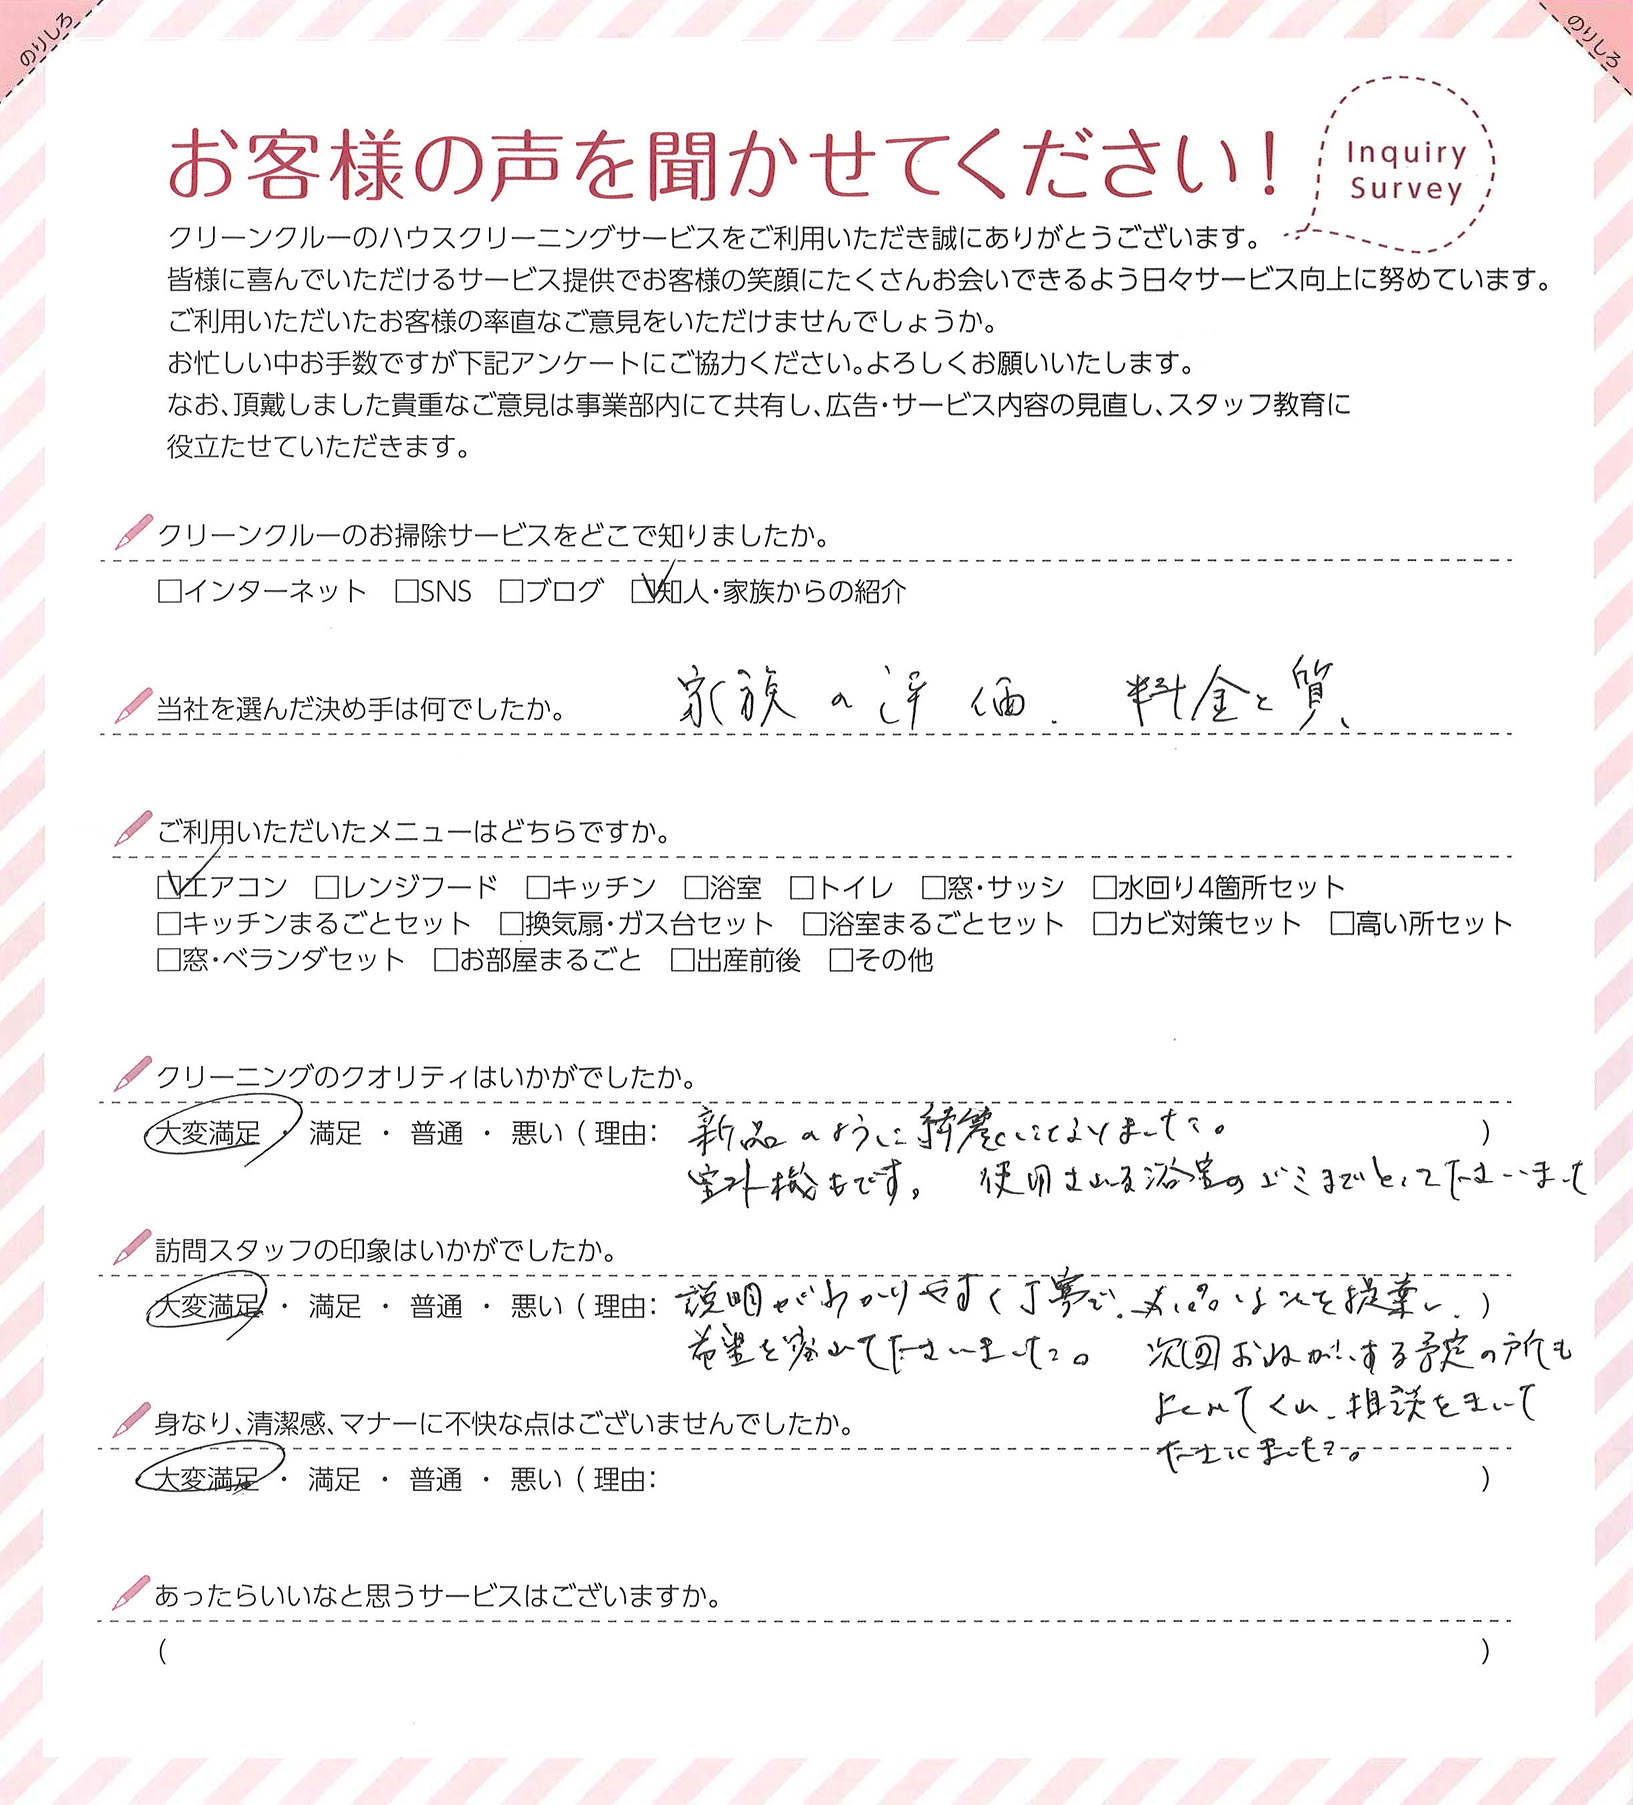 のりしろ
のりしろ
お客様の声を聞かせてください!
Inquiry
Survey
クリーンクルーのハウスクリーニングサービスをご利用いただき誠にありがとうございます。
皆様に喜んでいただけるサービス提供でお客様の笑顔にたくさんお会いできるよう日々サービス向上に努めています。
ご利用いただいたお客様の率直なご意見をいただけませんでしょうか。
お忙しい中お手数ですが下記アンケートにご協力ください。よろしくお願いいたします。
なお、頂戴しました貴重なご意見は事業部内にて共有し、広告・サービス内容の見直し、スタッフ教育に
役立たせていただきます。
クリーンクルーのお掃除サービスをどこで知りましたか。
□インターネット □SNS □ブログ ☑知人・家族からの紹介
当社を選んだ決め手は何でしたか。 家族の評価. 料金と質、
ご利用いただいたメニューはどちらですか。
☑エアコン □レンジフード □キッチン □浴室 □トイレ □窓・サッシ □水回り4箇所セット
□キッチンまるごとセット □換気扇・ガス台セット □浴室まるごとセット □カビ対策セット □高い所セット
□窓・ベランダセット □お部屋まるごと □出産前後 □その他
クリーニングのクオリティはいかがでしたか。
大変満足 ・ 満足 ・ 普通 ・ 悪い ( 理由: 新品のように綺麗になりました。 )
室外機もです。 使用される浴室のゴミまでとって下さいまして
訪問スタッフの印象はいかがでしたか。
大変満足 ・ 満足 ・ 普通 ・ 悪い ( 理由: 説明がわかりやすく丁寧で、 を提案し、 )
希望を 下さいました。 次回おねがいする予定の所も
よくみてくれ、相談をきいて
下さいました。
身なり、清潔感、マナーに不快な点はございませんでしたか。
大変満足 ・ 満足 ・ 普通 ・ 悪い ( 理由: )
あったらいいなと思うサービスはございますか。
( )